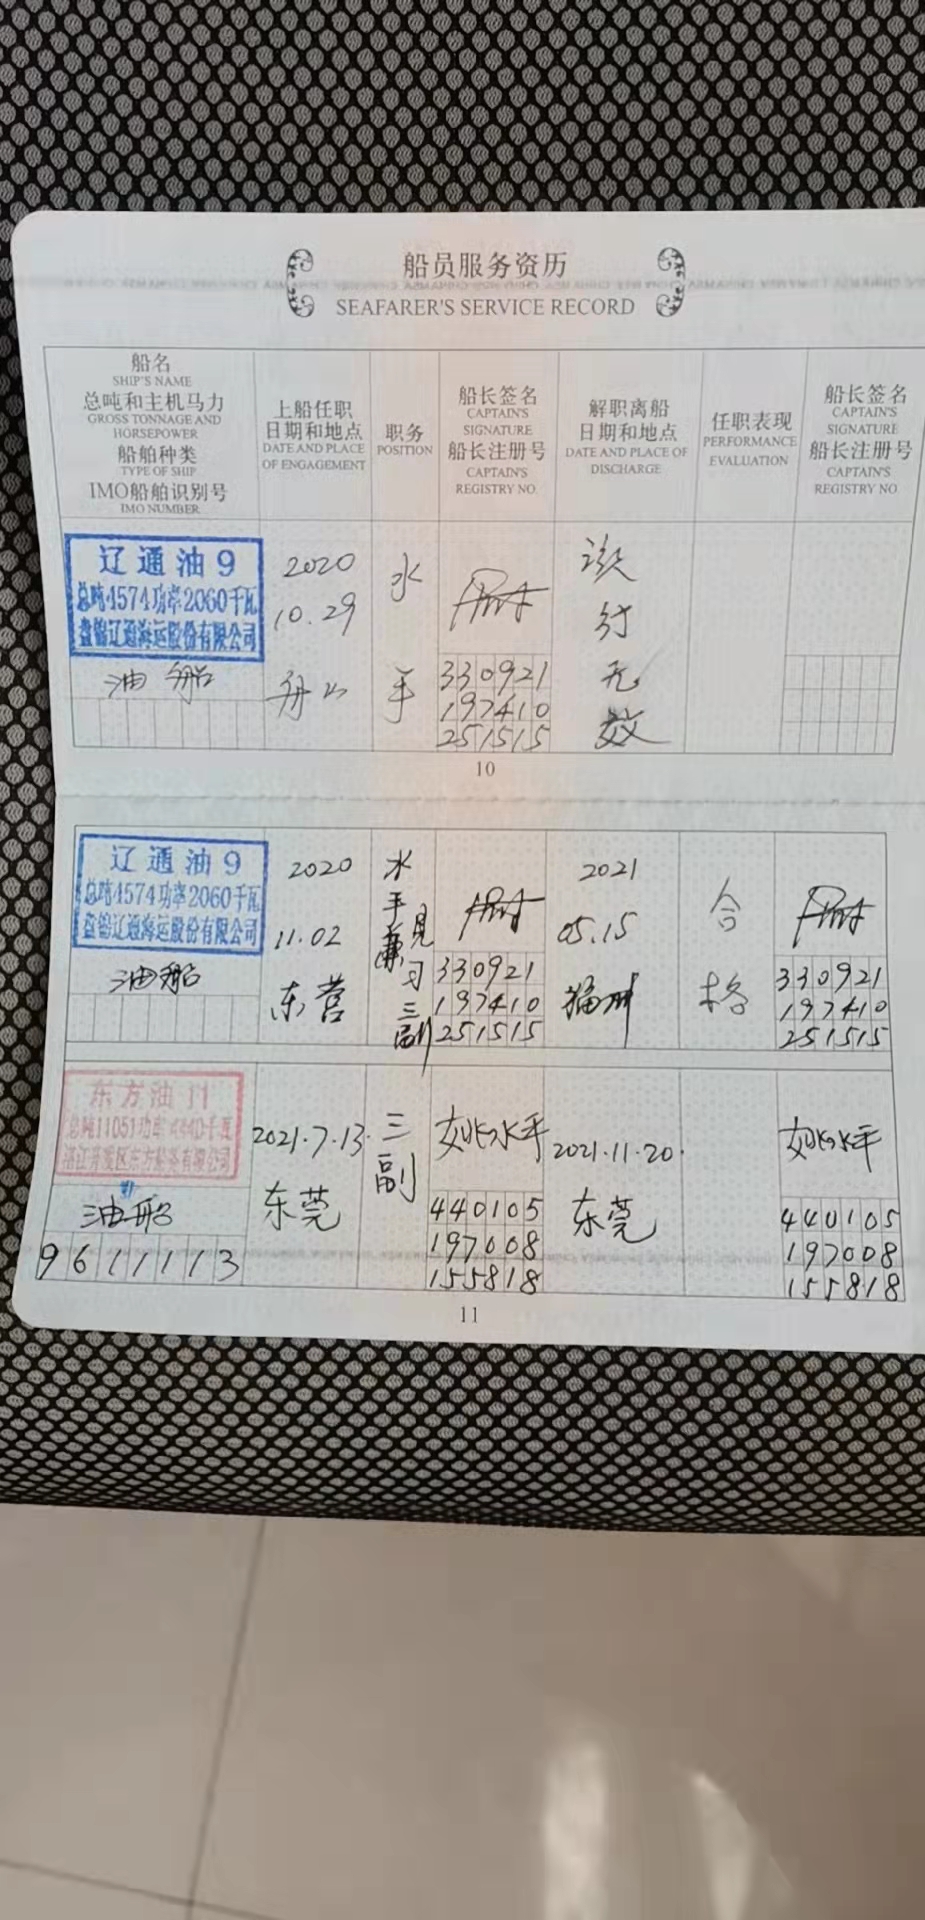 船员服务资历
SEAFARER'S SERVICE RECORD
船名
SHIP'S NAME
总吨和主机马力
GROSS TONNAGE AND
HORSEPOWER
船舶种类
TYPE OF SHIP
IMO船舶识别号
IMO NUMBER
上船任职
日期和地点
DATE AND PLACE
OF ENGAGEMENT
职务
POSITION
船长签名
CAPTAIN'S
SIGNATURE
船长注册号
CAPTAIN'S
REGISTRY NO.
解职离船
日期和地点
DATE AND PLACE OF
DISCHARGE
任职表现
PERFORMANCE
EVALUATION
船长签名
CAPTAIN'S
SIGNATURE
船长注册号
CAPTAIN'S
REGISTRY NO.
辽通油9
总吨4574功率2060千瓦
盘锦辽通海运股份有限公司
油船
2020
10.29
舟山
水
手
330921
197410
251515
该
行
无
效
10
辽通油9
总吨4574功率2060千瓦
盘锦辽通海运股份有限公司
油船
2020
11.02
东营
水
手
兼见
习
三
副
330921
197410
251515
2021
05.15
福州
合
格
330921
197410
251515
东方油11
总吨11051功率4440千瓦
湛江开发区东方船务有限公司
油船
9611113
2021.7.13.
东莞
三
副
姚水平
440105
197008
155818
2021.11.20.
东莞
姚水平
440105
197008
155818
11